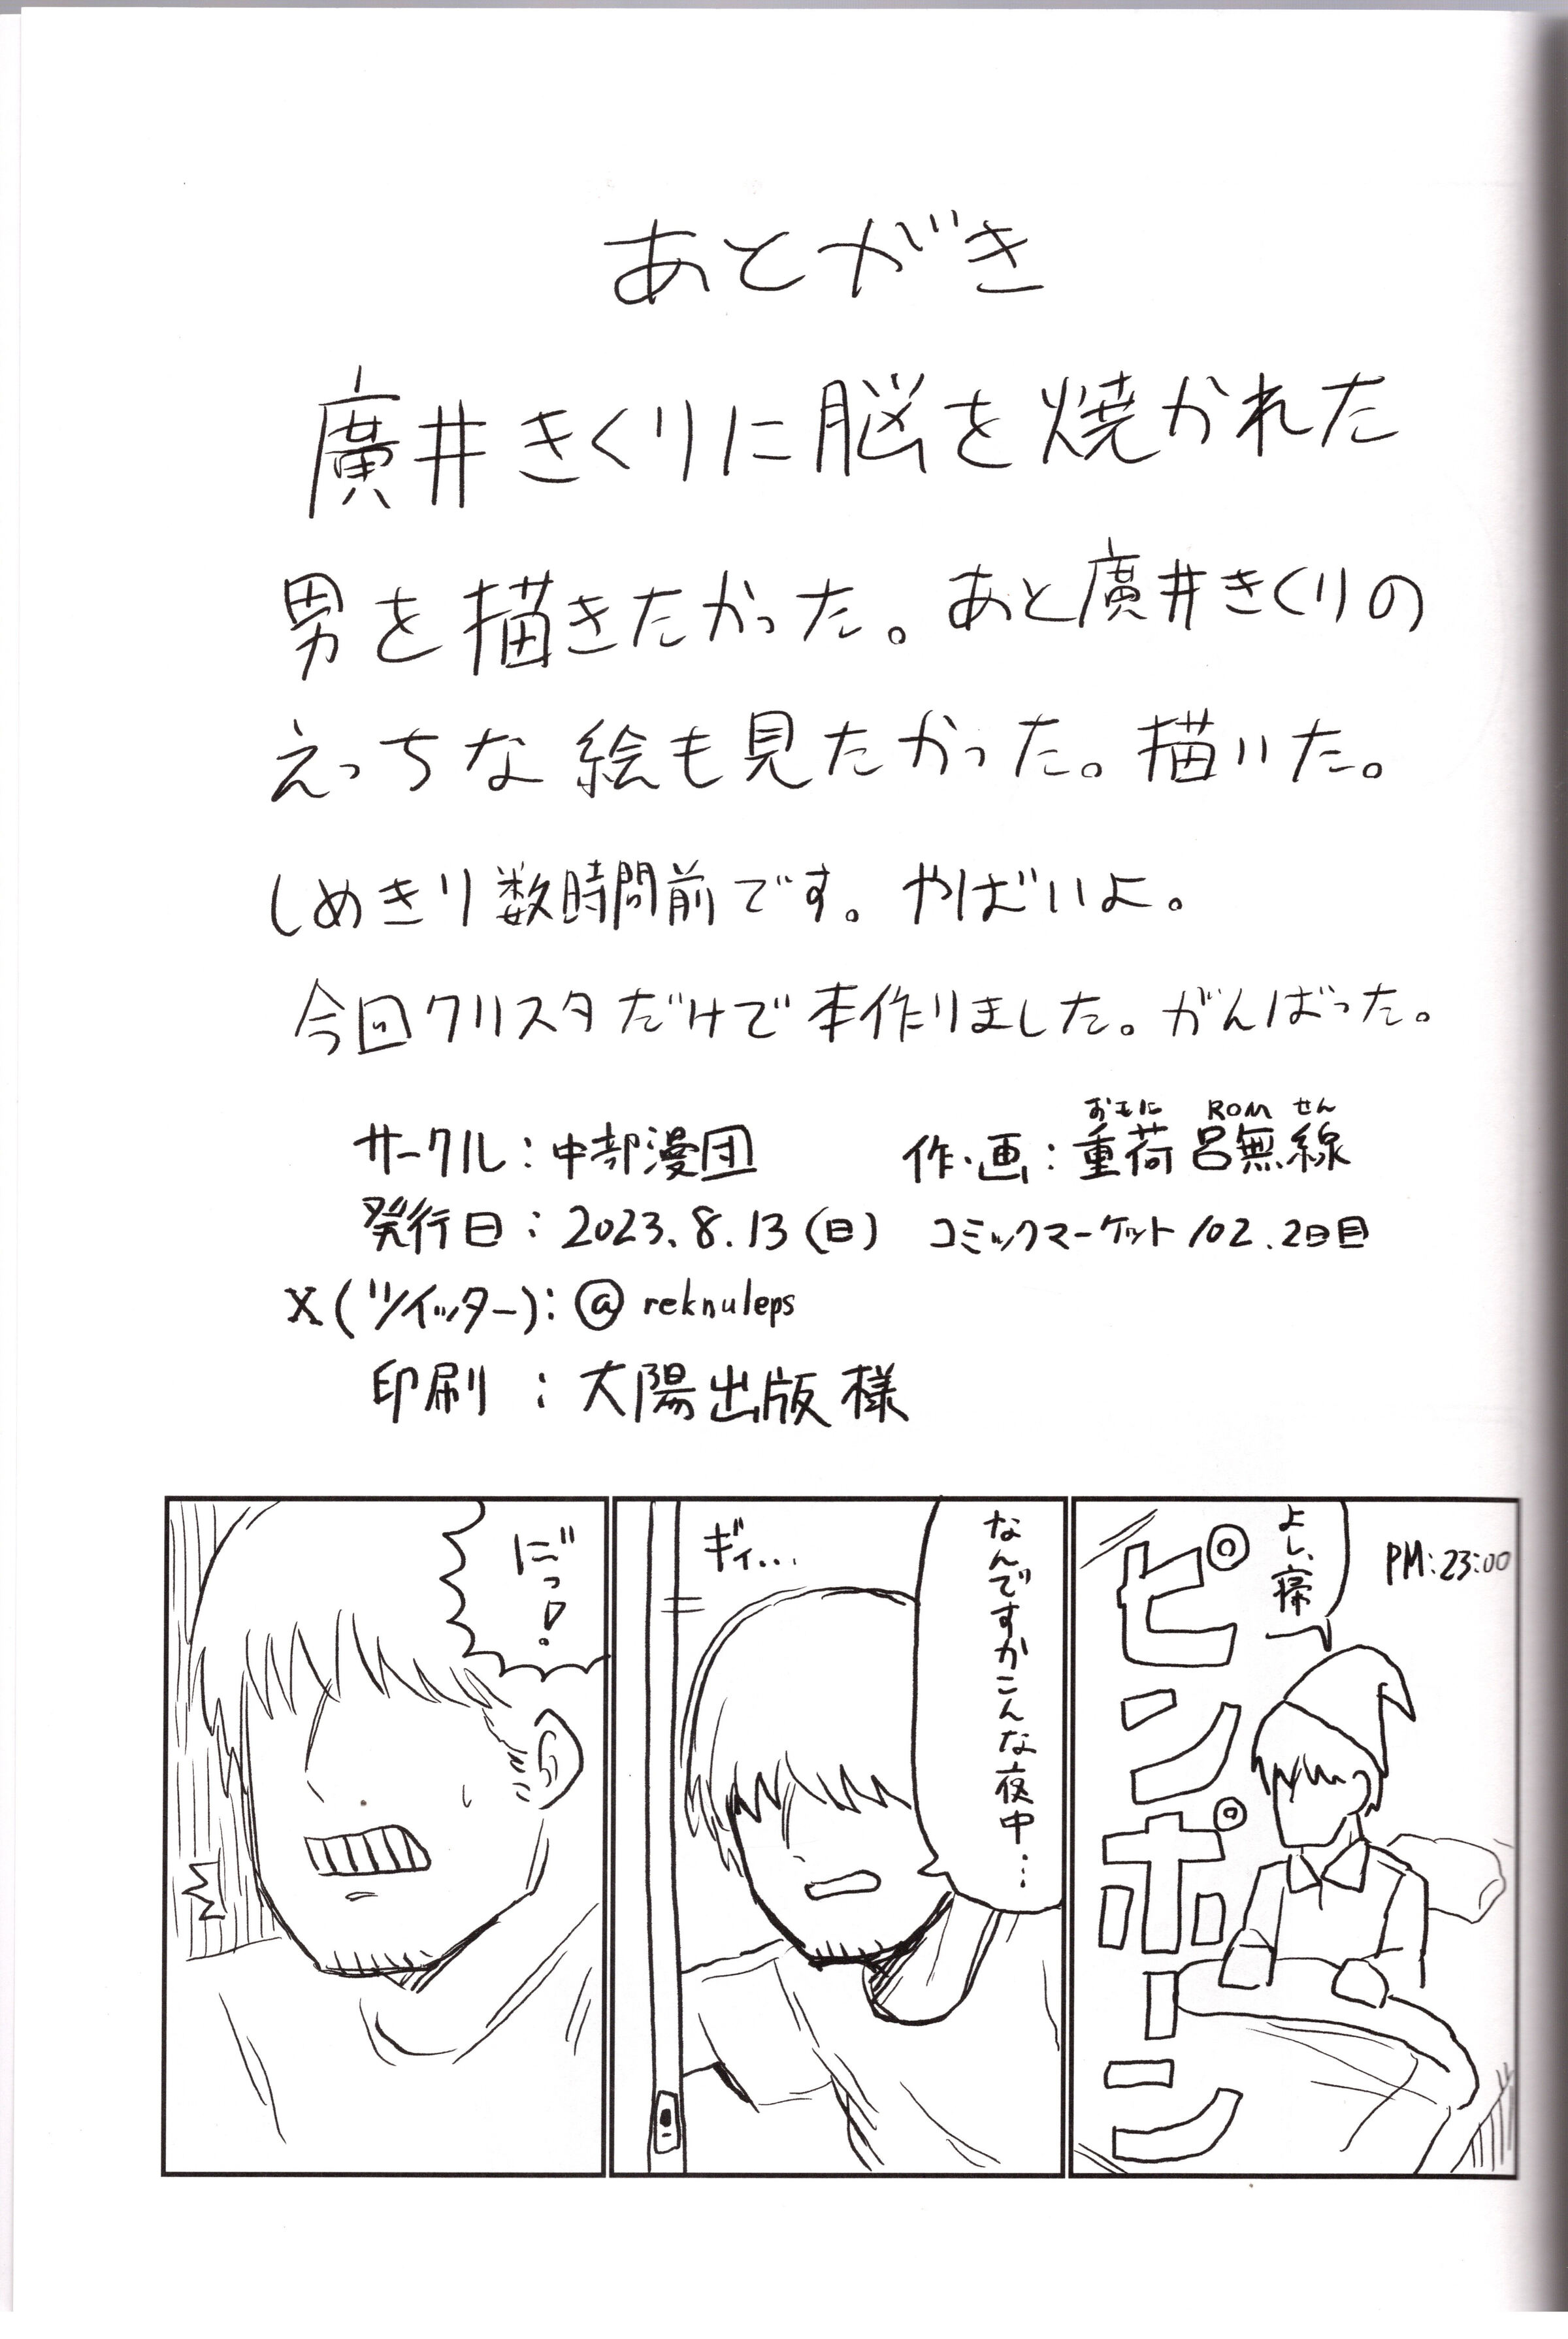 あとがき
廣井きくりに脳を焼かれた
男を描きたかった。あと廣井きくりの
えっちな絵も見たかった。描いた。
しめきり数時間前です。やばいよ。
今回クリスタだけで本作りました。がんばった。
サークル：中部漫団
作・画：重荷 呂無線
おもに ROM せん
発行日：2023.8.13(日) コミックマーケット102.2日目
X(ツイッター)：@reknuleps
印刷：大陽出版様
PM:23:00
よし、寝
ピンポーン
なんですかこんな夜中…
ギィ…
にっ!